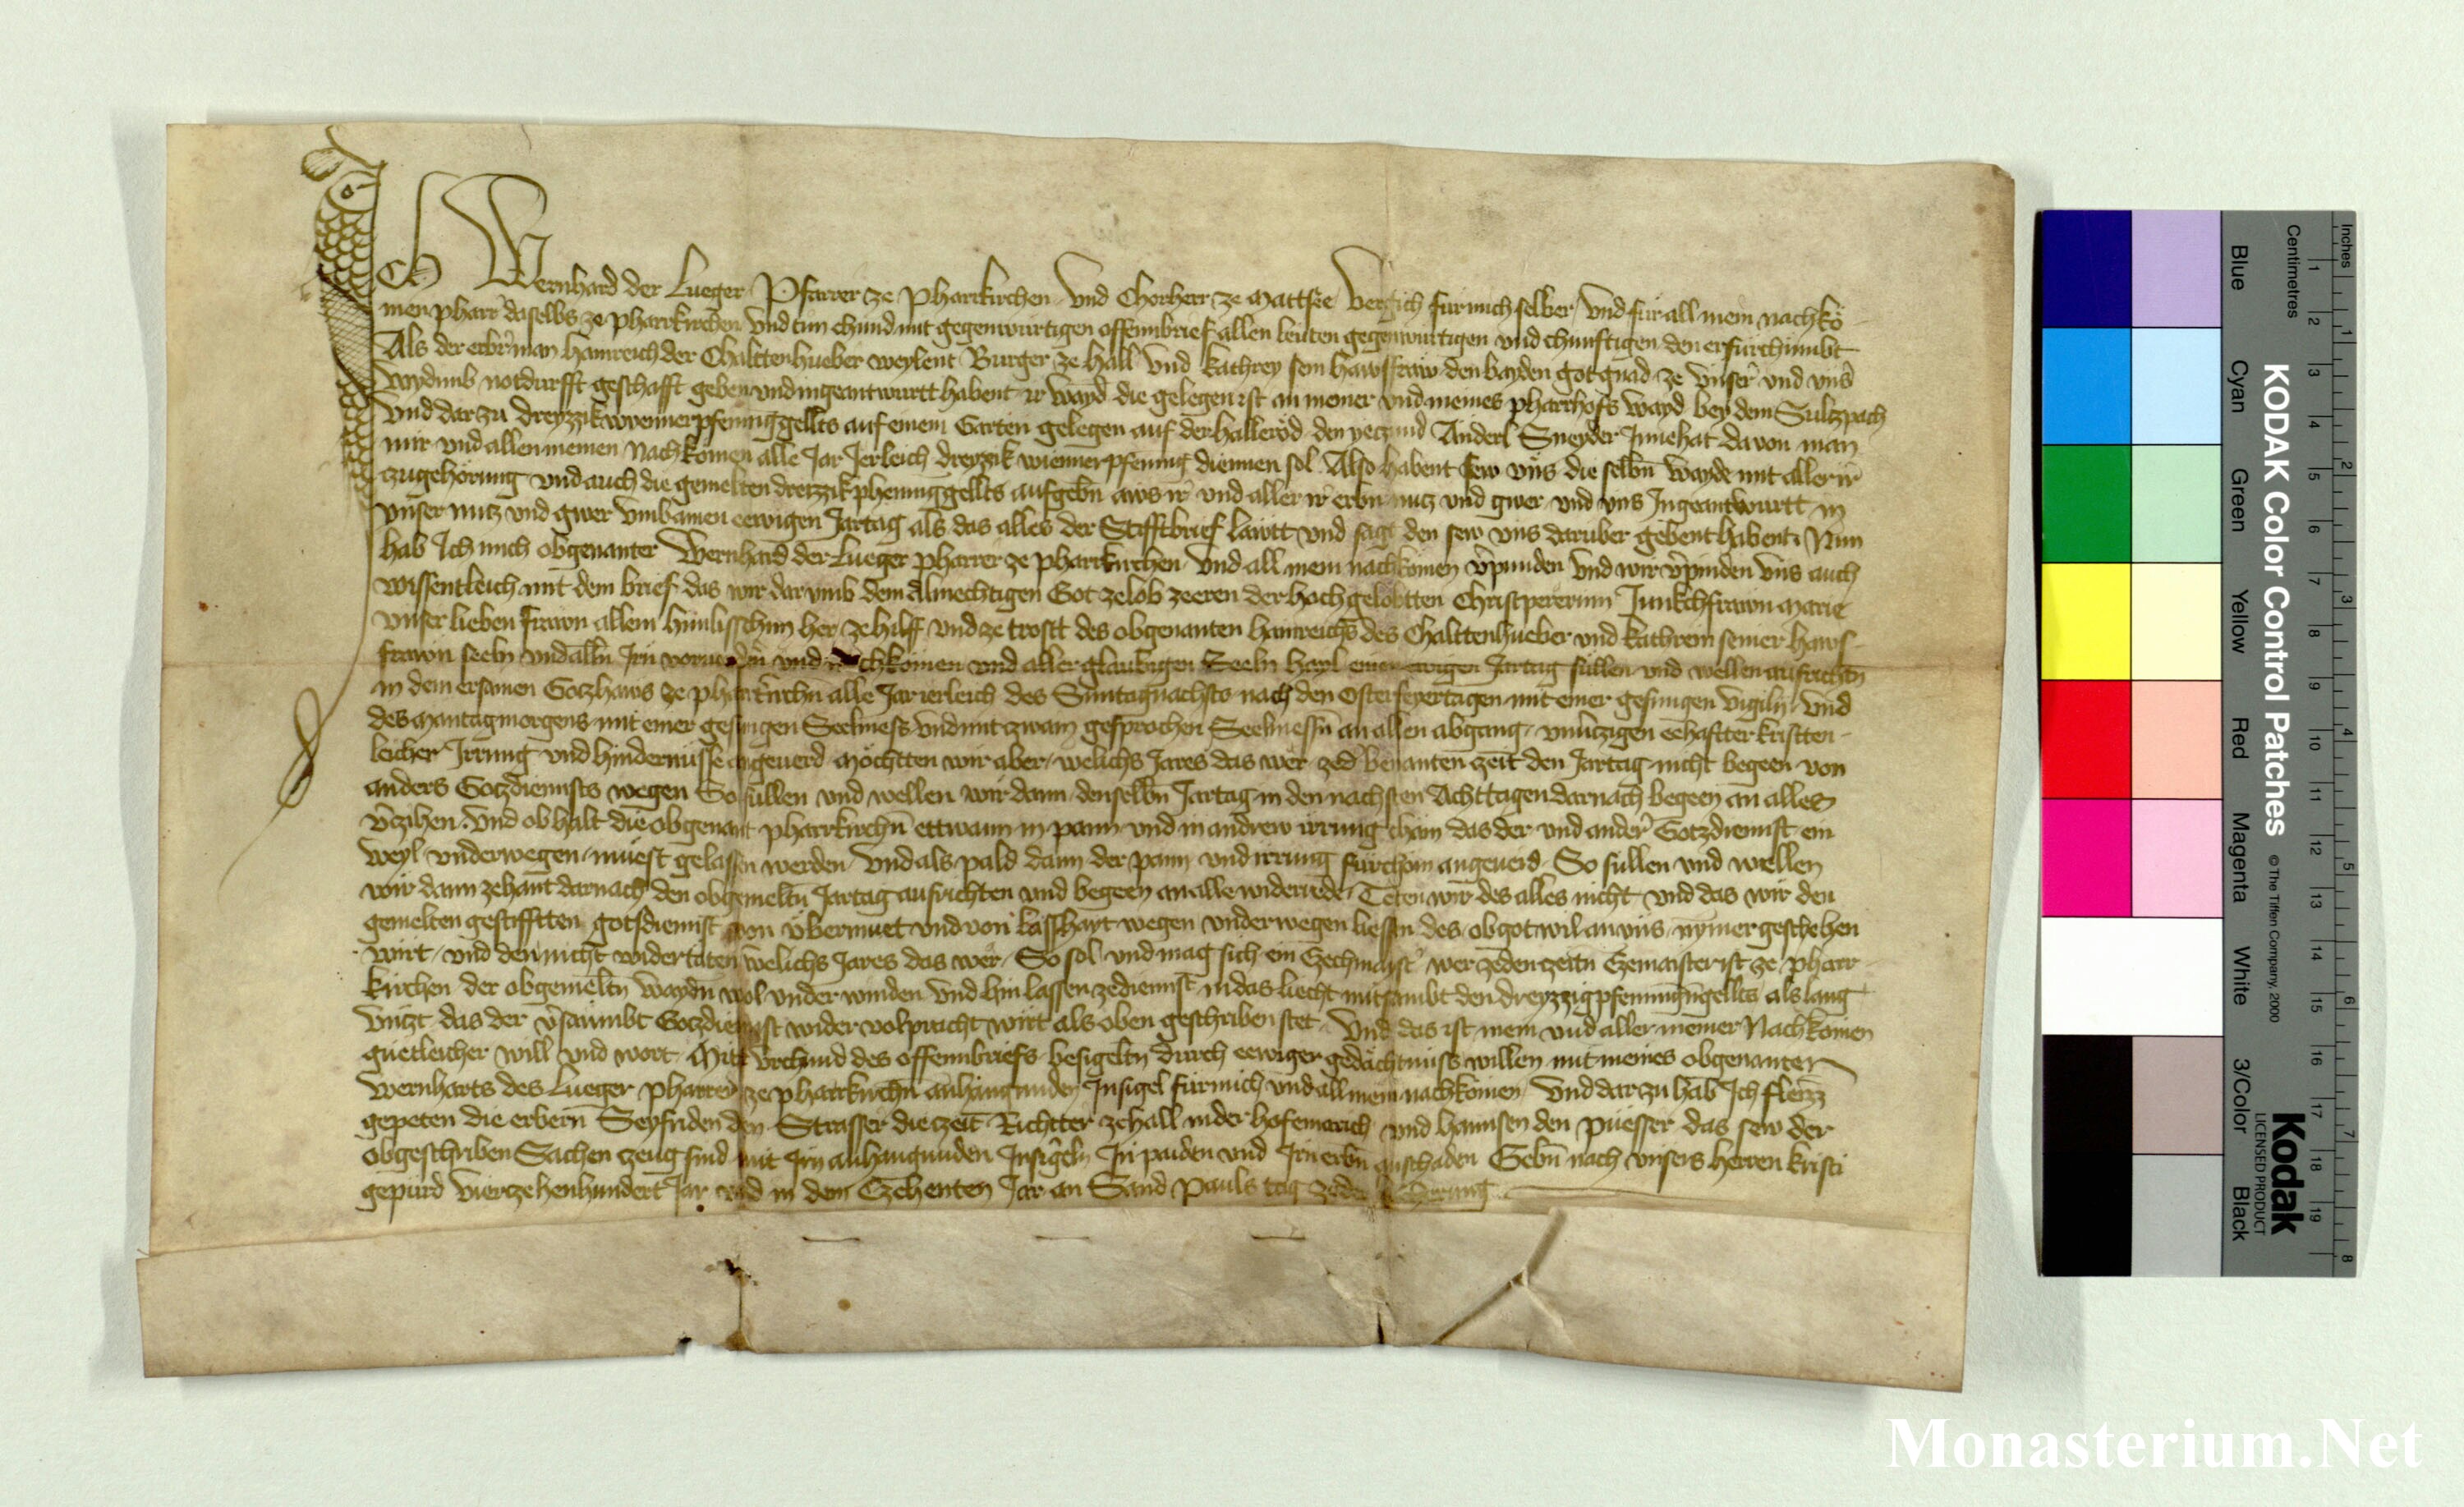 Ich Wernhard der Lueger Pfarrer ze Pharrkirchen Und Chorherr ze Mattsee Vergich fur mich selber Und fur all mein nachkö
men pharr daselbs ze pharrkirchen und tun chund mit gegenwurtigen offennbrief allen leuten gegenwurtigen und chunftigen den er furchumbt
Als der erbr man hainreich der Chalttenhueber weylent Burger ze hall Und kathrey sein hawsfraw den bayden got gnad ze unser und uns
Wydumb notdurfft geschafft geben und ingeantwurtt habent ir wayd die gelegen ist an meiner und meines pharrhofs wayd bey dem Sultzpach
Und darzu dreyzzik wienner pfenning gellts auf einem Garten gelegen auf der halleröd den yeczund Anderl Sneyder Innehat da von man
mir und allen meinen Nachkömen alle Jar Jerleich dreyzzik wienner pfennig diennen sol Also habent sew uns die selbn wayde mit aller ir
zugehörung und auch die gemelten dreizzik phenning gellts aufgebn aws ir und aller ir erbn nutz und gwer und uns Ingeantwurtt in
unser nutz und gwer Umb ainen eewigen Jartag als das alles der Stifftbrief lawtt und sagt den sew uns daruber gebent habent Nun
hab Ich mich obgenanter Wernhard der Lueger pharrer ze pharrkirchen Und all mein nachkömen v̄punden Und wir v̄pinden uns auch
wissentleich mit dem brief das wir darumb dem Almechtigen Got zelob zeeren der hochgelobtten Christpererinn Junkchfrawn Marie
unser lieben frawn allem himlisschim her ze hilff und ze trostt des obgenanten hainreichs des Chalttenhueber und kathrein seiner haws
frawn seeln und alln Irn vorvodern und nachkömen und aller glaubigen Seeln hayl einen ewigen Jartag sullen und wellen aufrichtn
in dem ersamen Gotzhaws ze pharrkirchn alle Jar ierleich des Suntag nachsts nach den Osterfeyertagen mit einer gesungen vigilij Und
des Mantag morgens mit einer gesungen Seelmess und mit zwain gesprochen Seelmessn an allen abgang eehaffter kristten
leicher Irrung und hindernüsse angeuerd Möchtten wir aber welichs Jares das wer zed benanten zeit den Jartag nicht begeen von
anders Gotzdiennsts wegen So sullen und wellen wir dann denselbn Jartag in den nachsten Achttagen darnach begeen an alles
v̄czihen Und ob halt die obgenant pharrkirchn ettwann in pann und in andrew irrung chäm das der und ander Gotzdiennst ein
weyl underwegen müest gelassn werden Und als pald dann der pann und irrung furchäm angeuerd So sullen und wellen
wir dann zehant darnach den obgemeltn Jartag aufrichten und begeen an alle widerrede Teten wir des alles nicht und das wir den
gemelten gestifftten gotsdiennst von übermuet und von lasshayt wegen underwegen liessn des ob got wil an uns nymer geschehen
wirt und den nicht widertaten welichs Jares das wer So sol und mag sich ein Czechmaist wer zeden zeitn Czemaister ist ze pharr
kirchen der obgemeltn Waydn wol underwinden Und hin lassen zediennst in das liecht mitsambt den dreyzzig pfenningn gellts als lang
Untzt das der v̄saumbt Gotzdiennst wider volpracht wirt als oben geschriben stet Und das ist mein und aller meiner Nachkömen
guetleicher will und wort Mit Urchund des offennbriefs besigeltn durch eewiger gedächtnuss willen mit meines obgenanten
Wernharts des Lueger pharrer ze pharrkirchn anhangunden Insigel fur mich und all mein nachkömen Und darzu hab Ich
gepeten die erbern Seyfriden den Strasser die zeit Richtter ze hall in der hofemarch und hannsen den püesser das sew der
obgeschriben Sachen zeug sind mit Irn anhangunden Insigeln In paiden und Irn erbn anschaden Gebn nach unsers herren kristi
gepurd Vierzehenhundert Jar und in dem Czehenten Jar an Sand Pauls tag zeder becherung
Inches
Centimetres
Blue
Cyan
Green
Yellow
Red
Magenta
White
3/Color
Black
KODAK Color Control Patches
© The Tiffen Company, 2000
Kodak
LICENSED PRODUCT
1 2 3 4 5 6 7 8 9 10 11 12 13 14 15 16 17 18 19
1 2 3 4 5 6 7 8
Monasterium.Net